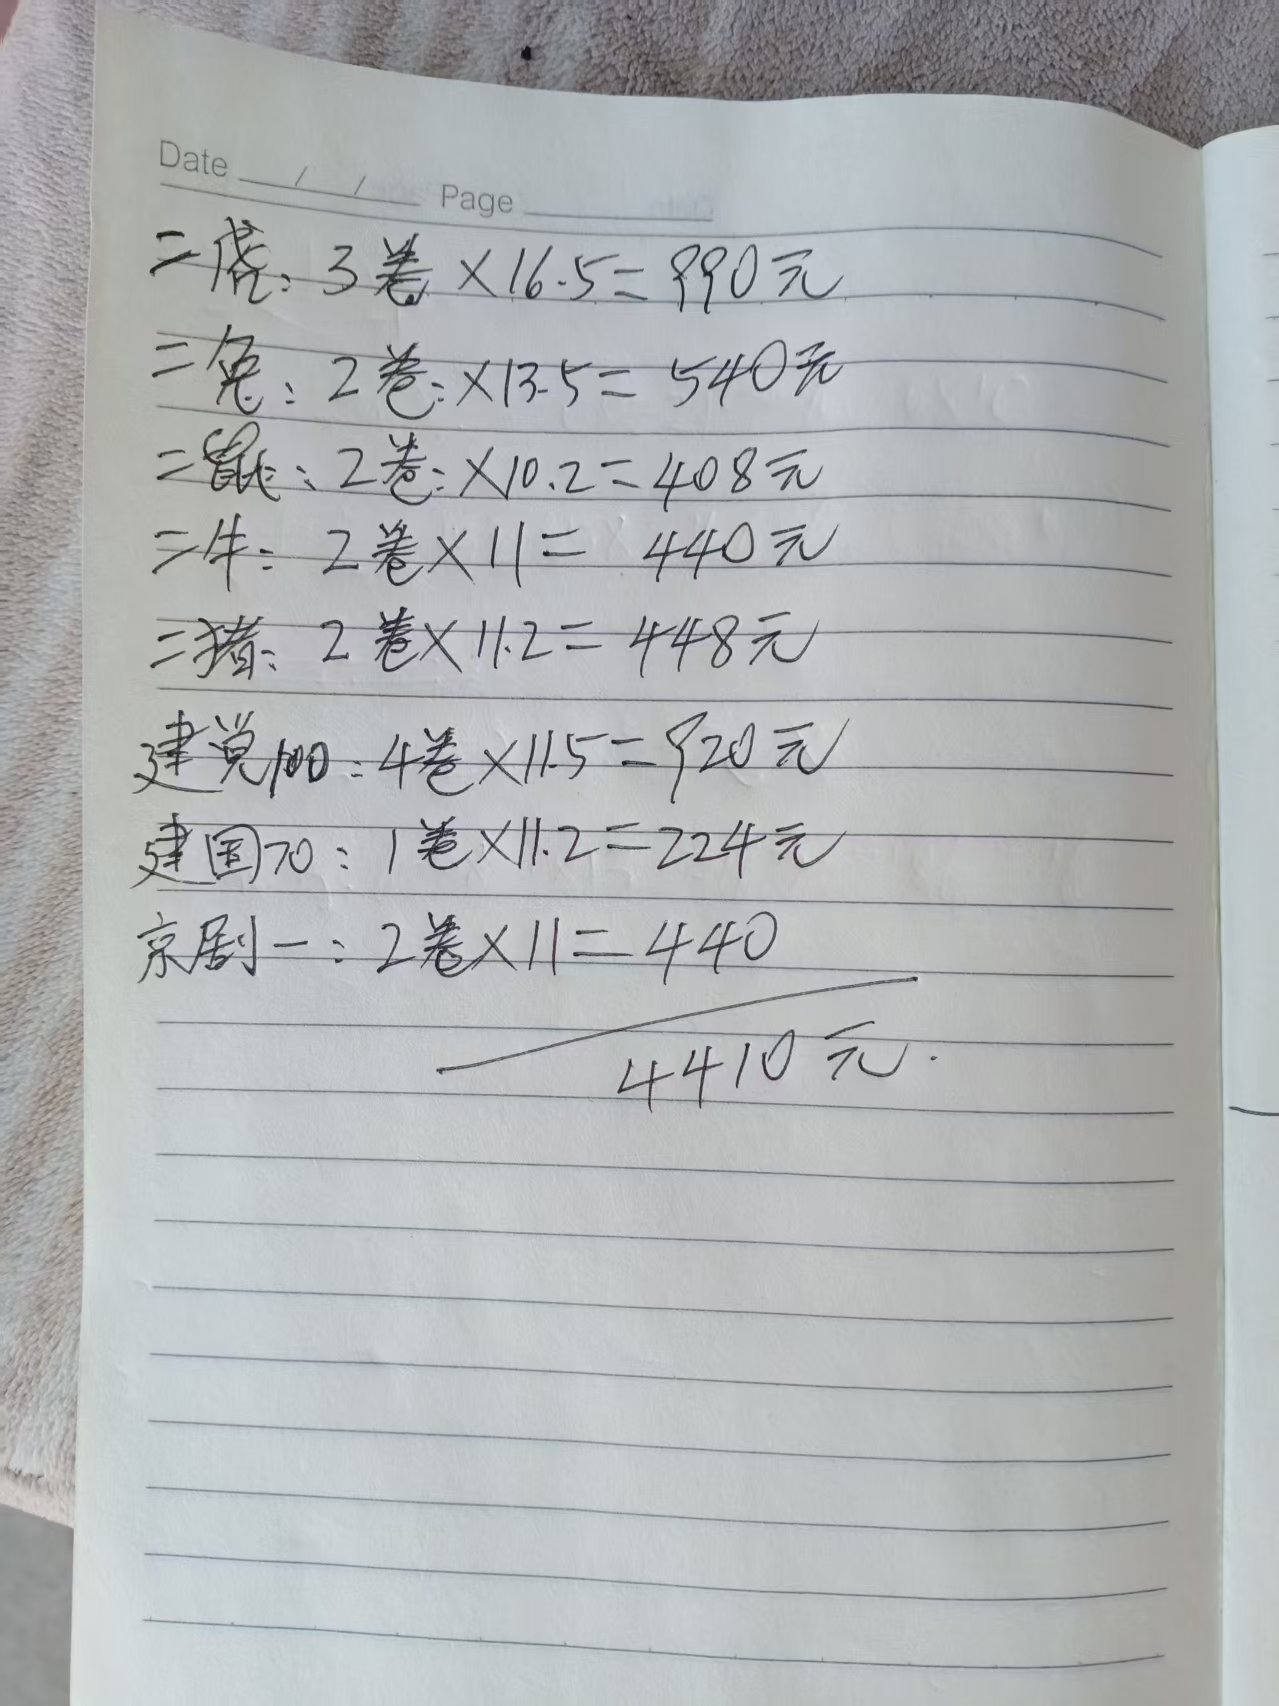 Date / / Page
二虎：3卷×16.5=990元
二兔：2卷：×13.5=540元
二鼠：2卷：×10.2=408元
二牛：2卷×11=440元
二猪：2卷×11.2=448元
建党100：4卷×11.5=920元
建国70：1卷×11.2=224元
京剧一：2卷×11=440
4410元.